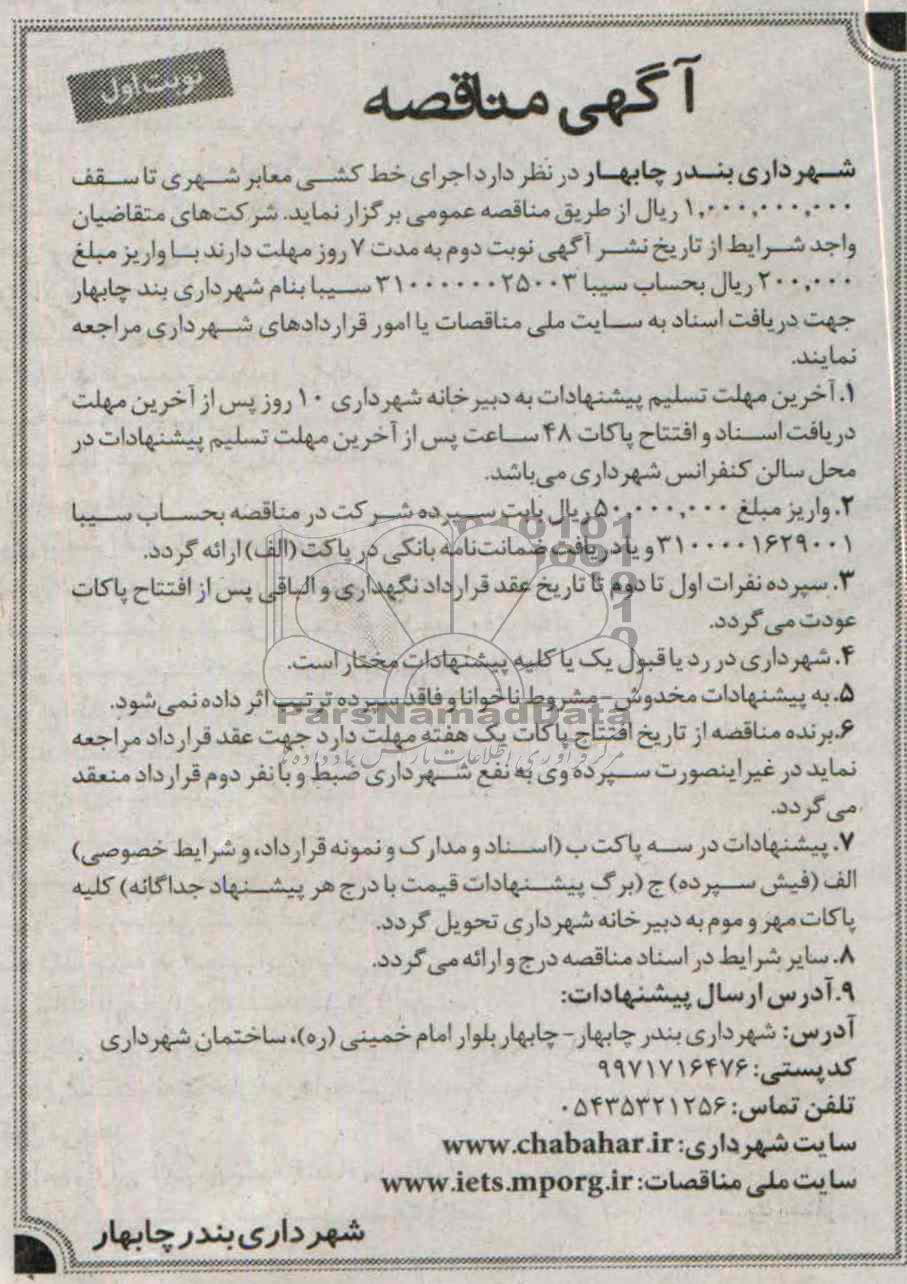 نوبت اول
آگهی مناقصه
شهرداری بندر چابهار در نظر دارد اجرای خط کشی معابر شهری تا سقف
۱,۰۰۰,۰۰۰,۰۰۰ ریال از طریق مناقصه عمومی برگزار نماید. شرکت‌های متقاضیان
واجد شرایط از تاریخ نشر آگهی نوبت دوم به مدت ۷ روز مهلت دارند با واریز مبلغ
۲۰۰,۰۰۰ ریال بحساب سیبا ۳۱۰۰۰۰۰۰۲۵۰۰۳ سیبا بنام شهرداری بند چابهار
جهت دریافت اسناد به سایت ملی مناقصات یا امور قراردادهای شهرداری مراجعه
نمایند.
۱. آخرین مهلت تسلیم پیشنهادات به دبیرخانه شهرداری ۱۰ روز پس از آخرین مهلت
دریافت اسناد و افتتاح پاکات ۴۸ ساعت پس از آخرین مهلت تسلیم پیشنهادات در
محل سالن کنفرانس شهرداری می‌باشد.
۲. واریز مبلغ ۵۰,۰۰۰,۰۰۰ ریال بابت سپرده شرکت در مناقصه بحساب سیبا
۳۱۰۰۰۰۱۶۲۹۰۰۱ و یا دریافت ضمانت‌نامه بانکی در پاکت (الف) ارائه گردد.
۳. سپرده نفرات اول تا دوم تا تاریخ عقد قرارداد نگهداری و الباقی پس از افتتاح پاکات
عودت می‌گردد.
۴. شهرداری در رد یا قبول یک یا کلیه پیشنهادات مختار است.
۵. به پیشنهادات مخدوش-مشروط ناخوانا و فاقد سپرده ترتیب اثر داده نمی‌شود.
ParsNamadData
۶.برنده مناقصه از تاریخ افتتاح پاکات یک هفته مهلت دارد جهت عقد قرارداد مراجعه
نماید در غیر اینصورت سپرده وی به نفع شهرداری ضبط و با نفر دوم قرارداد منعقد
می‌گردد.
۷. پیشنهادات در سه پاکت ب (اسناد و مدارک و نمونه قرارداد، و شرایط خصوصی)
الف (فیش سپرده) ج (برگ پیشنهادات قیمت با درج هر پیشنهاد جداگانه) کلیه
پاکات مهر و موم به دبیرخانه شهرداری تحویل گردد.
۸. سایر شرایط در اسناد مناقصه درج و ارائه می‌گردد.
۹.آدرس ارسال پیشنهادات:
آدرس: شهرداری بندر چابهار- چابهار بلوار امام خمینی (ره)، ساختمان شهرداری
کدپستی: ۹۹۷۱۷۱۶۴۷۶
تلفن تماس: ۰۵۴۳۵۳۲۱۲۵۶
سایت شهرداری: www.chabahar.ir
سایت ملی مناقصات: www.iets.mporg.ir
شهرداری بندر چابهار